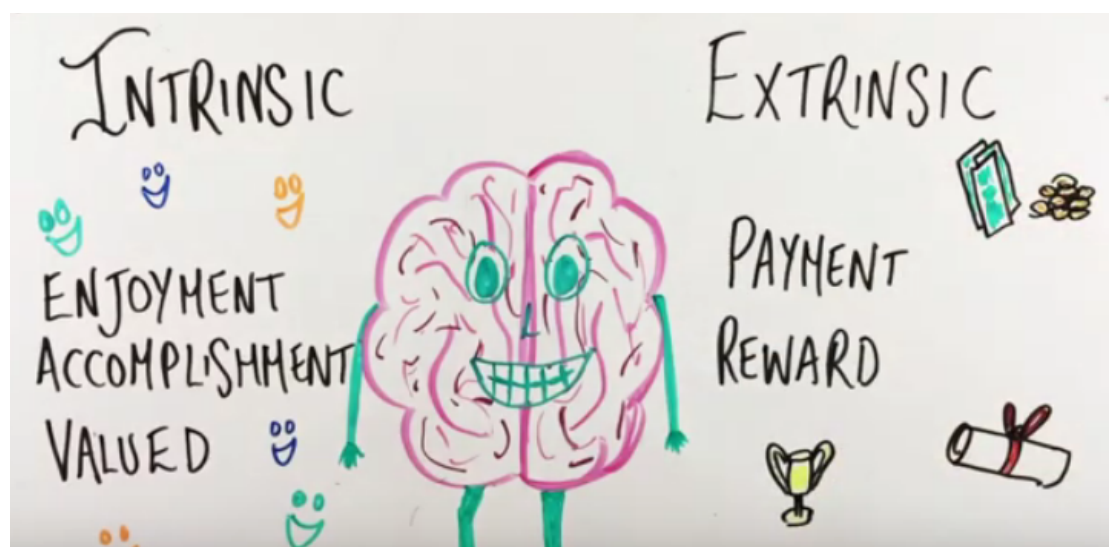 INTRINSIC
ENJOYMENT
ACCOMPLISHMENT
VALUED
EXTRINSIC
PAYMENT
REWARD